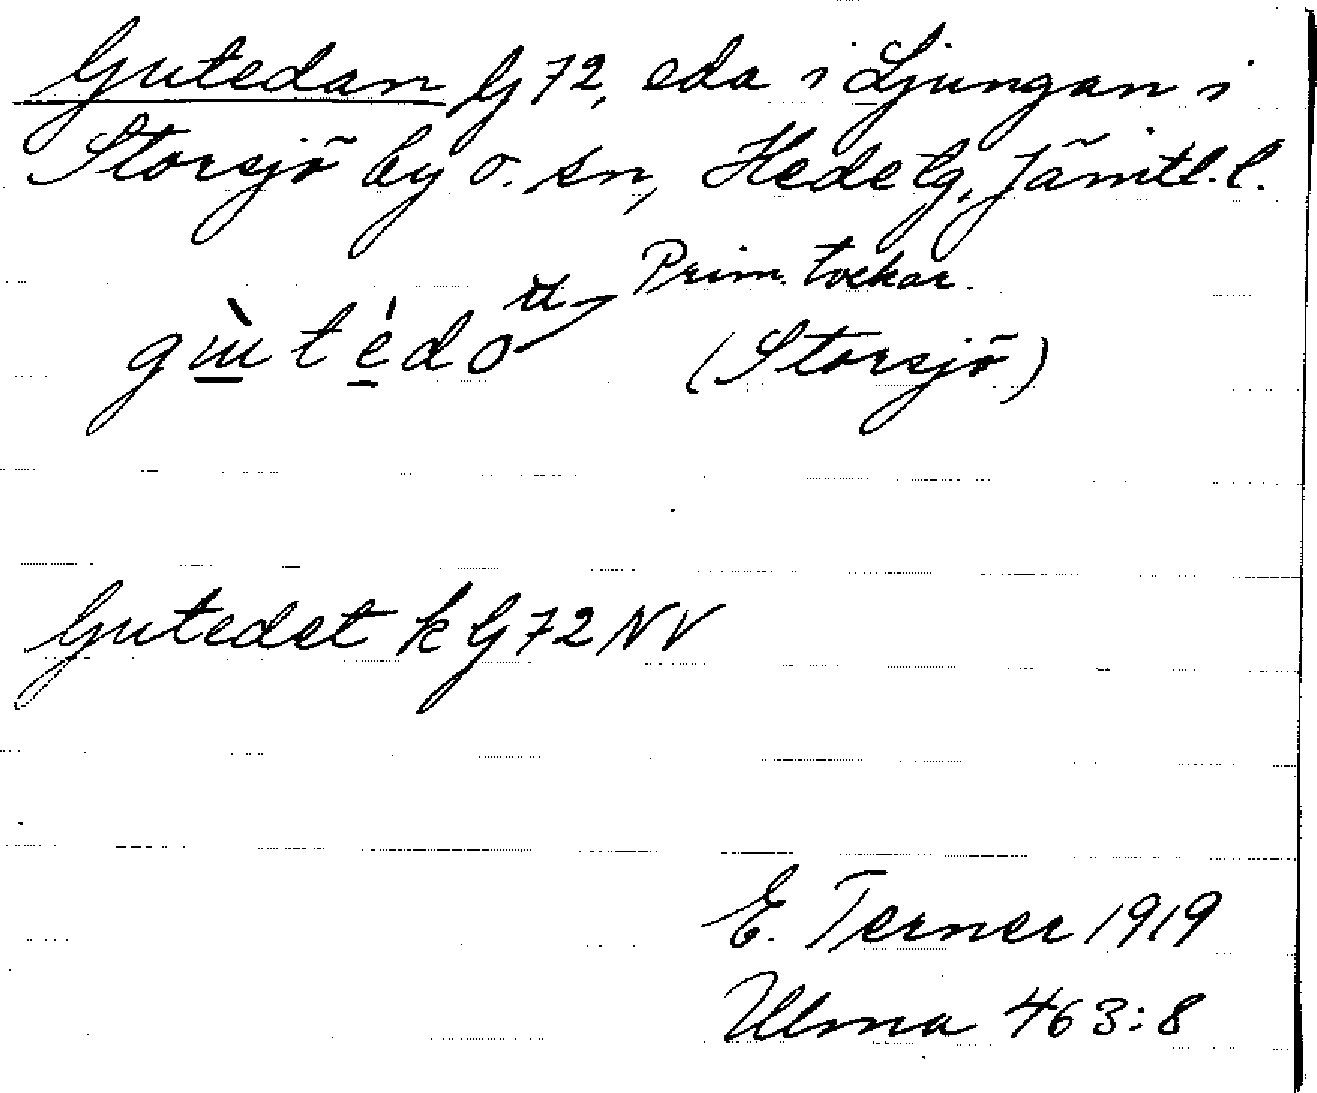 Gutedan G 72, eda i Ljungan i
Storsjö by o. sn, Hede tg, Jämtl. l.
Prim. tockar.
(Storsjö)
Gutedet k G 72 NV
E. Terner 1919
Ulma 463:8